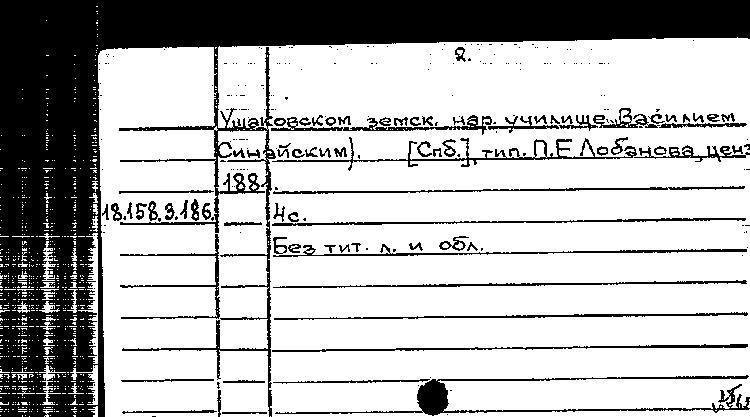 2.
Ушаковском земск. нар. училище Василием
Синайским). [Спб.], тип. П.Е Лобанова, ценз
1881.
18.158.3.186. 4с.
Без тит. л. и обл.